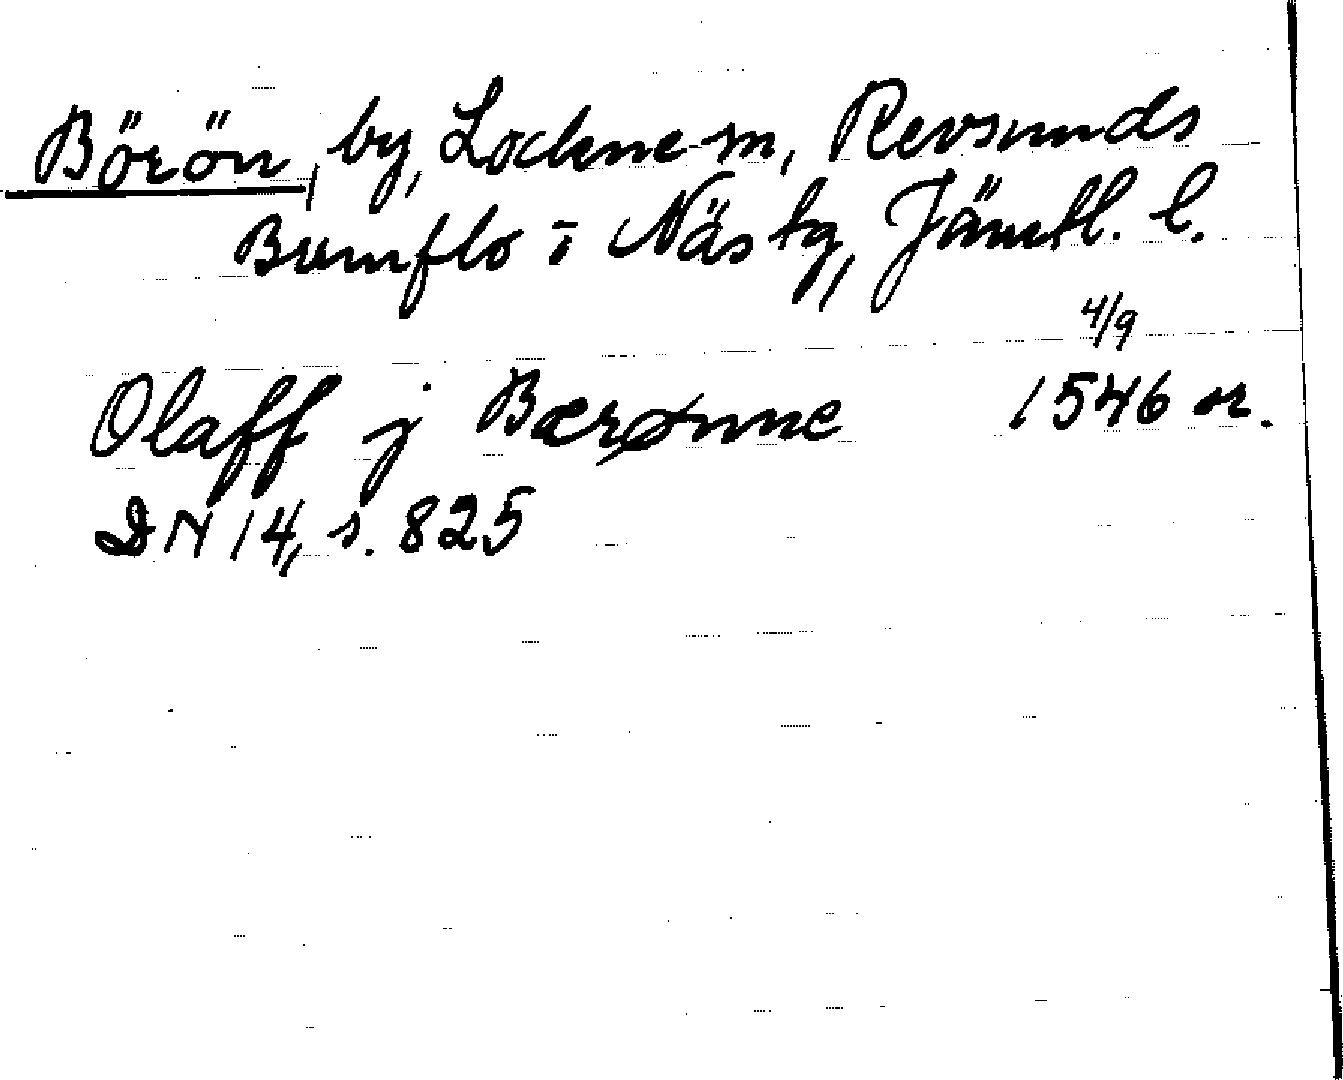 Börön, by, Lockne sn, Revsunds
Brunflo o Näs tg, Jämtl. l.
4/9
Olaff j Bærønne 1546 or.
DN 14, s. 825